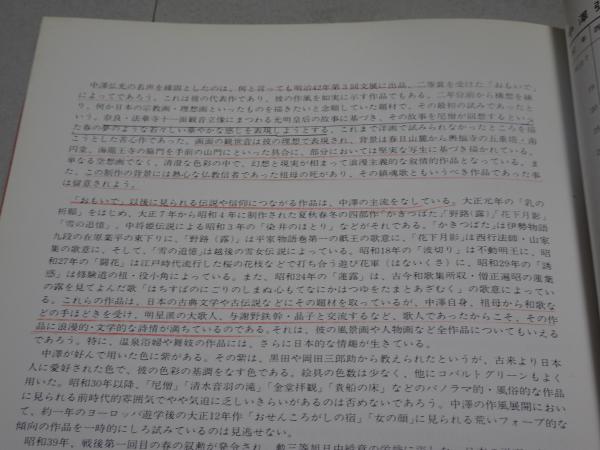 中澤弘光の名声を確固としたのは、何と言っても明治42年第3回文展に出品、二等賞を受けた「おもいで」
によってであろう。これは彼の代表作であり、彼の作風を如実に示す作品でもある。二年位前から構想を練
り、何か日本の宗教画・理想画といったものを描きたいと念願していた題材で、その最初の試みであったと
いう。奈良・法華寺十一面観音立像にまつわる光明皇后の故事に基づき、その故事を尼僧が回想するといっ
た春の夢のような若々しい華やかな感じを表現しようとする、これまで洋画で試みられなかったところを描
こうとした苦心作であった。画面の観世音は彼の理想で表現され、背景は春日山麓から興福寺の五重塔・南
円堂、海龍王寺の脇門を手前の山門にといった具合に、部分においては堅実な写生に基づき描かれている。
単なる空想画でなく、清澄な色彩の中で、幻想と現実が相まって浪漫主義的な叙情的作品となっている。ま
た、この制作の背景には熱心な仏教信者であった祖母の死があり、その鎮魂歌ともいうべき作品であった事
は留意されよう。
「おもいで」以後に見られる伝説や信仰につながる作品は、中澤の主流をなしている。大正元年の「乳の
祈願」をはじめ、大正7年から昭和4年に制作された夏秋春冬の四部作「かきつばた」「野路(露)」「花下月影」
「雪の追憶」、中将姫伝説による昭和3年の「染井のほとり」などがそれである。「かきつばた」は伊勢物語
九段の在原業平の東下りに、「野路(露)」は平家物語巻第一の祇王の歌意に、「花下月影」は西行法師・山家
集の歌意に、そして、「雪の追憶」は越後の雪女伝説によっている。昭和18年の「波切り」は不動明王に、昭
和27年の「闘花」は江戸時代流行した桜の花枝などで打ち合う遊び花軍(はないくさ)に、昭和29年の「誘
惑」は修験道の祖・役小角によっている。また、昭和24年の「蓮露」は、古今和歌集所収・僧正遍昭の蓮葉
の露を見てよんだ歌「はちすばのにごりのしまぬ心もてなにかはつゆをたまとあざむく」の歌意によってい
る。これらの作品は、日本の古典文学や古伝説などにその題材を取っているが、中澤自身、祖母から和歌な
どの手ほどきを受け、明星派の大歌人、与謝野鉄幹・晶子と交流するなど、歌人であったからこそ、その作
品に浪漫的・文学的な詩情が満ちているのである。それは、彼の風景画や人物画など全作品についてもいえる
であろう。特に、温泉浴婦や舞妓の作品には、さらに日本的な情趣が生きている。
中澤が好んで用いた色に紫がある。その紫は、黒田や岡田三郎助から教えられたというが、古来より日本
人に愛好された色で、彼の色彩の基調をなす色である。絵具の色数は少なく、他にコバルトグリーンもよく
用いた。昭和30年以降、「尼僧」「清水音羽の滝」「金堂拝観」「貴船の床」などのパノラマ的・風俗的な作品
に見られる前時代的雰囲気でやや気迫に乏しいきらいがあるのは否めないであろう。中澤の作風展開におい
て、約一年のヨーロッパ遊学後の大正12年作「おせんころがしの宿」「女の顔」に見られる荒いフォーブ的な
傾向の作品を一時的にしろ試みているのは見逃せない。
昭和39年、戦後第一回目の春の叙勲が発令され、勲三等旭日中綬章の